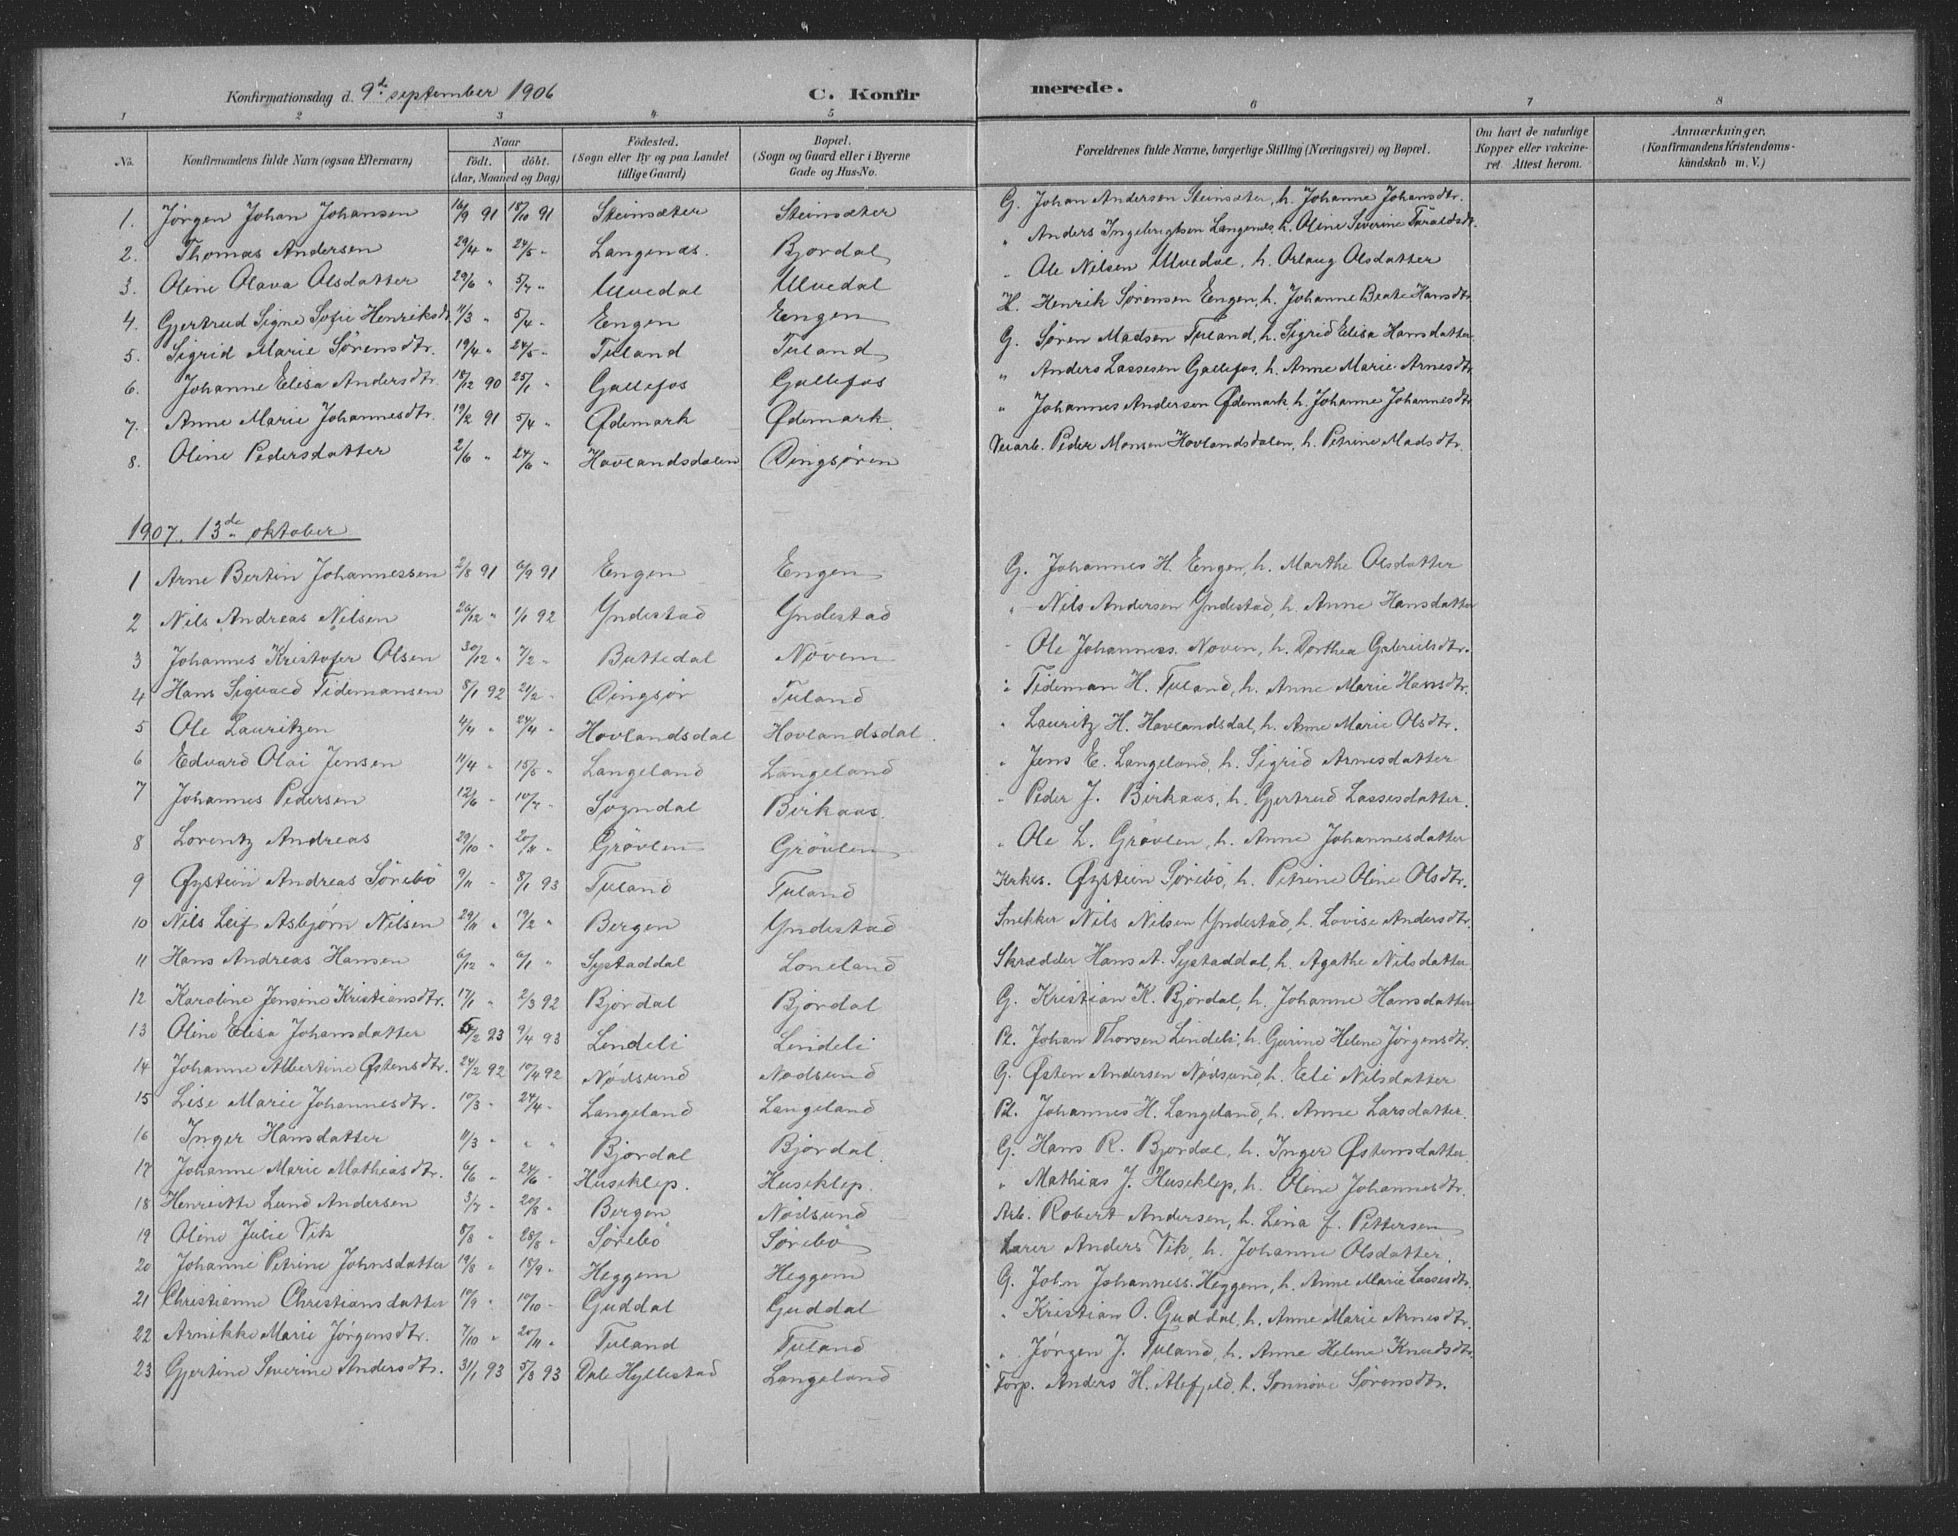 Konfirmationsdag d. 9de september 1906 C. Konfirmerede.
1 2 3 4 5 6 7 8
No. Konfirmandens fulde Navn (ogsaa Efternavn) Naar født. døbt. (Aar, Maaned og Dag) Fødested. (Sogn eller By og paa Landet tillige Gaard) Bopæl. (Sogn og Gaard eller i Byerne Gade og Hus-No. Forældrenes fulde Navne, borgerlige Stilling (Næringsvei) og Bopæl. Om havt de naturlige Kopper eller vakcineret Attest herom. Anmærkninger. (Konfirmandens Kristendomskundskab m. V.)
1. Jørgen Johan Johansen 16/9 91 18/10 91 Steinsæter Steinsæter G. Johan Andersen Steinsæter, h. Johanne Johansdtr.
2. Thomas Andersen 29/4 " 24/5 " Langenæs. Bjordal " Anders Ingebrigtsen Langenes, h. Oline Severine Taraldsdt.
3. Oline Olava Olsdatter 29/6 " 5/7 " Ulvedal Ulvedal " Ole Nilsen Ulvedal, h. Orlaug Olsdatter
4. Gjertrud Signe Sofie Henriksdt. 11/3 " 5/4 " Engen Engen H. Henrik Sørensen Engen, h. Johanne Beate Hansdtr
5. Sigrid Marie Sørensdtr. 19/4 " 24/5 " Tuland Tuland G. Søren Madsen Tuland, h. Sigrid Elisa Hansdatter
6. Johanne Elisa Andersdtr. 18/12 90 25/1 " Gallefos Gallefos " Anders Lassesen Gallefos, h. Anne Marie Arnesdtr
7. Anne Marie Johannesdtr. 19/2 91 5/4 " Ødemark Ødemark " Johannes Andersen Ødemark h. Johanne Johannesdtr
8. Oline Pedersdatter 2/6 " 24/6 " Hovlandsdalen Dingsøren Veiarb. Peder Monsen Hovlandsdalen, h. Petrine Madsdtr.
1907. 13de oktober
1 Arne Bertin Johannessen 2/8 91 6/9 91 Engen Engen G. Johannes H. Engen, h. Marthe Olsdatter
2 Nils Andreas Nilsen 26/12 " 1/1 92 Yndestad Yndestad " Nils Andersen Yndestad, h. Anne Hansdatter
3 Johannes Kristofer Olsen 30/12 " 7/2 " Buttedal Noven " Ole Johanness. Noven, h. Dorthea Gabrielsdtr.
4 Hans Sigvald Tidemansen 8/1 92 21/2 " Dingsør Tuland " Tideman H. Tuland, h. Anne Marie Hansdtr.
5 Ole Lauritzen 4/4 " 24/4 " Hovlandsdal Hovlandsdal " Lauritz H. Hovlandsdal, h. Anne Marie Olsdtr.
6 Edvard Olai Jensen 11/4 " 15/5 " Langeland Langeland " Jens E. Langeland, h. Sigrid Arnesdatter
7 Johannes Pedersen 12/6 " 10/7 " Sogndal Birkaas. " Peder J. Birkaas, h. Gjertrud Lassesdatter.
8 Lorentz Andreas 29/10 " 20/11 " Grøvlen Grøvlen " Ole L. Grøvlen, h. Anne Johannesdatter
9 Øystein Andreas Sørebø 9/11 " 8/1 93 Tuland Tuland Kirkes. Øystein Sørebø, h. Petrine Oline Olsdtr.
10 Nils Leif Asbjørn Nilsen 29/11 " 19/2 " Bergen Yndestad Snekker Nils Nilsen Yndestad, h. Lovise Andersdtr.
11 Hans Andreas Hansen 6/12 " 6/1 " Systaddal Loneland Skrædder Hans A. Systaddal, h. Agathe Nilsdatter
12 Karoline Jensine Kristiansdtr. 17/1 " 2/3 92 Bjordal Bjordal G. Kristian K. Bjordal, h. Johanne Hansdatter
13 Oline Elisa Johansdatter 5/2 93 9/4 93 Lindeli Lindeli Pl. Johan Thorsen Lindeli, h. Gurine Helene Jørgensdtr.
14 Johanne Albertine Østensdtr. 24/2 92 10/4 92 Nødsund Nødsund G. Østen Andersen Nødsund, h. Eli Nilsdatter
15 Lise Marie Johannesdtr. 10/3 " 24/4 " Langeland Langeland Pl. Johannes H. Langeland, h. Anne Larsdatter.
16 Inger Hansdatter 11/3 " " " Bjordal Bjordal. G. Hans R. Bjordal, h. Inger Østensdatter
17 Johanne Marie Mathiasdtr. 6/6 " 24/6 " Huseklep. Huseklep. " Mathias J. Huseklep, h. Oline Johannesdtr.
18 Henriette Lund Andersen 3/7 " 20/8 " Bergen Nødsund Arb. Robert Andersen, h. Lina f. Pettersen
19 Oline Julie Vik 8/8 " 28/8 " Sørebø Sørebø Lærer Anders Vik, h. Johanne Olsdatter
20 Johanne Petrine Johnsdatter 19/8 " 18/9 " Heggem Heggem G. John Johanness. Heggem, h. Anne Marie Lassesdtr.
21 Christianne Christiansdatter 10/9 " 10/10 " Guddal Guddal " Kristian O. Guddal, h. Anne Marie Arnesdtr.
22 Arnikke Marie Jørgensdtr. 7/10 " 20/11 " Tuland Tuland " Jørgen J. Tuland, h. Anne Helene Knudsdtr.
23 Gjertine Severine Andersdtr. 31/1 93 5/3 93 Dale Hyllestad Langeland Forp. Anders H. Alefjeld, h. Sønnøve Sørensdtr.